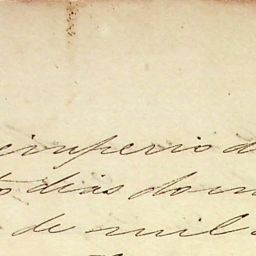 imperio d
to dias do m
de mil